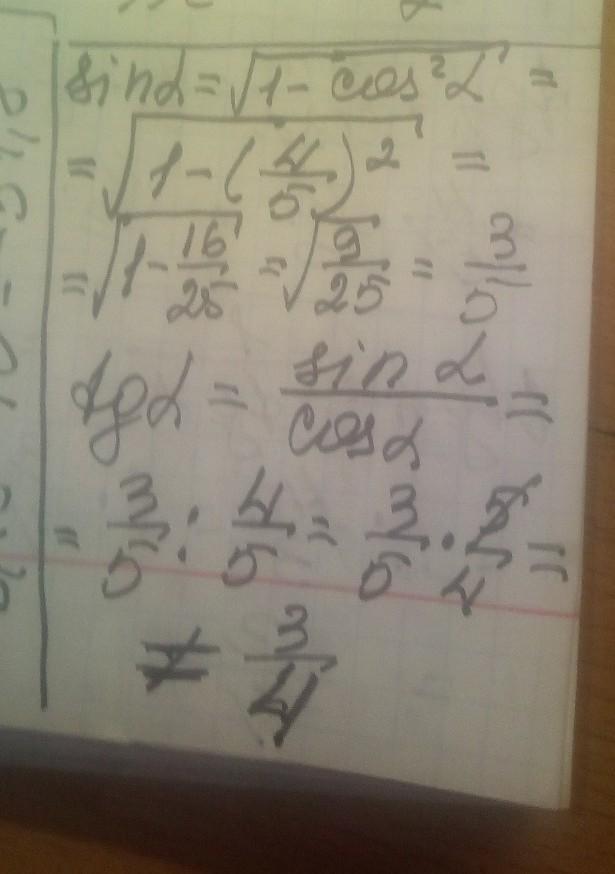 sinα = √(1 - cos²α) =
= √(1 - (4/5)²) =
= √(1 - 16/25) = √(9/25) = 3/5
tgα = sin α / cos α =
= 3/5 : 4/5 = 3/5 · 5/4 =
≠ 3/4